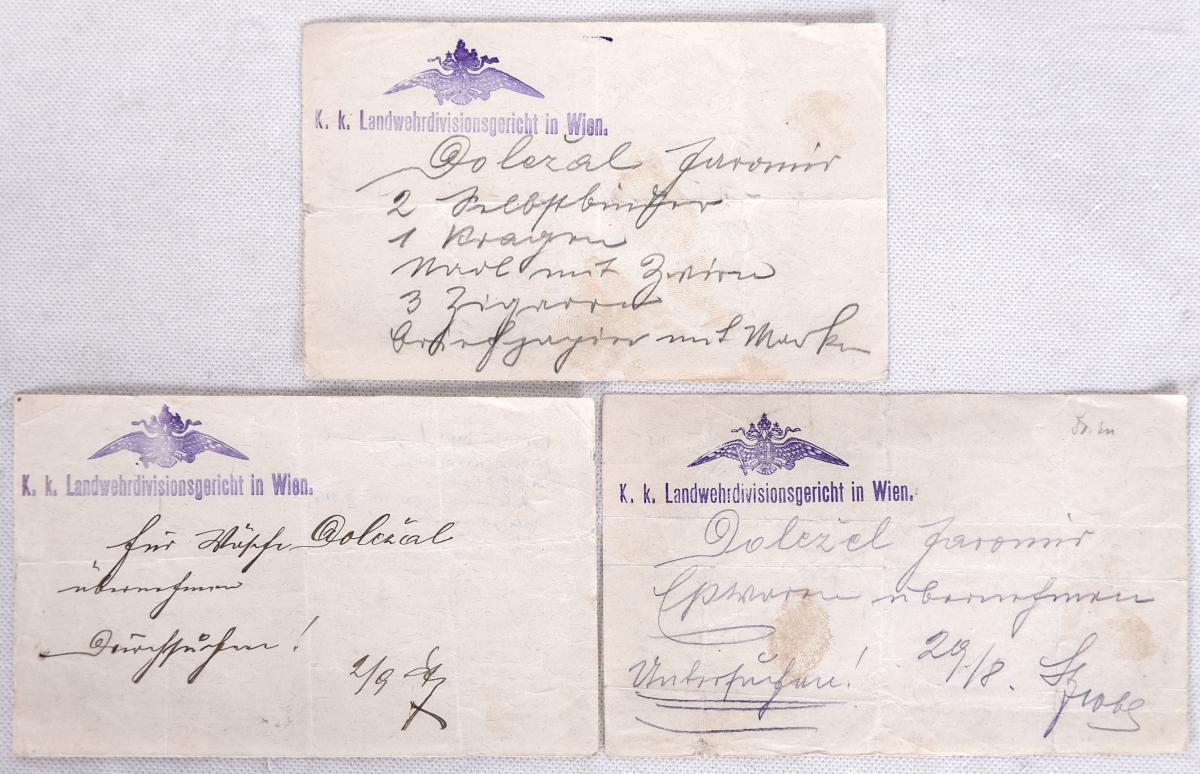 K. k. Landwehrdivisionsgericht in Wien.
Doležal Jaromir
2 Selbstbinder
1 Kragen
Nadl mit Zwirn
3 Zigarren
Briefpapier mit Marken
K. k. Landwehrdivisionsgericht in Wien.
für Wäsche Doležal
übernehmen
Durchsuchen!
2/9
K. k. Landwehrdivisionsgericht in Wien.
Doležel Jaromir
Esswaren übernehmen
Untersuchen! 29./8.